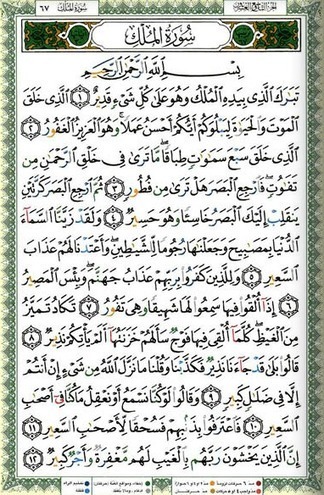 ٦٧ سُورَةُ المُلْكِ الجزء التاسع والعشرون
سُورَةُ المُلْكِ
بِسْمِ اللَّهِ الرَّحْمَٰنِ الرَّحِيمِ
تَبَٰرَكَ الَّذِى بِيَدِهِ الْمُلْكُ وَهُوَ عَلَىٰ كُلِّ شَىْءٍ قَدِيرٌ ١ الَّذِى خَلَقَ
الْمَوْتَ وَالْحَيَوٰةَ لِيَبْلُوَكُمْ أَيُّكُمْ أَحْسَنُ عَمَلًا وَهُوَ الْعَزِيزُ الْغَفُورُ ٢
الَّذِى خَلَقَ سَبْعَ سَمَٰوَٰتٍ طِبَاقًا مَّا تَرَىٰ فِى خَلْقِ الرَّحْمَٰنِ مِن
تَفَٰوُتٍ فَارْجِعِ الْبَصَرَ هَلْ تَرَىٰ مِن فُطُورٍ ٣ ثُمَّ ارْجِعِ الْبَصَرَ كَرَّتَيْنِ
يَنقَلِبْ إِلَيْكَ الْبَصَرُ خَاسِئًا وَهُوَ حَسِيرٌ ٤ وَلَقَدْ زَيَّنَّا السَّمَآءَ
الدُّنْيَا بِمَصَٰبِيحَ وَجَعَلْنَٰهَا رُجُومًا لِّلشَّيَٰطِينِ وَأَعْتَدْنَا لَهُمْ عَذَابَ
السَّعِيرِ ٥ وَلِلَّذِينَ كَفَرُوا بِرَبِّهِمْ عَذَابُ جَهَنَّمَ وَبِئْسَ الْمَصِيرُ
٦ إِذَآ أُلْقُوا فِيهَا سَمِعُوا لَهَا شَهِيقًا وَهِىَ تَفُورُ ٧ تَكَادُ تَمَيَّزُ
مِنَ الْغَيْظِ كُلَّمَآ أُلْقِىَ فِيهَا فَوْجٌ سَأَلَهُمْ خَزَنَتُهَآ أَلَمْ يَأْتِكُمْ نَذِيرٌ ٨
قَالُوا بَلَىٰ قَدْ جَآءَنَا نَذِيرٌ فَكَذَّبْنَا وَقُلْنَا مَا نَزَّلَ اللَّهُ مِن شَىْءٍ إِنْ أَنتُمْ
إِلَّا فِى ضَلَٰلٍ كَبِيرٍ ٩ وَقَالُوا لَوْ كُنَّا نَسْمَعُ أَوْ نَعْقِلُ مَا كُنَّا فِىٓ أَصْحَٰبِ
السَّعِيرِ ١٠ فَاعْتَرَفُوا بِذَنۢبِهِمْ فَسُحْقًا لِّأَصْحَٰبِ السَّعِيرِ ١١
إِنَّ الَّذِينَ يَخْشَوْنَ رَبَّهُم بِالْغَيْبِ لَهُم مَّغْفِرَةٌ وَأَجْرٌ كَبِيرٌ ١٢